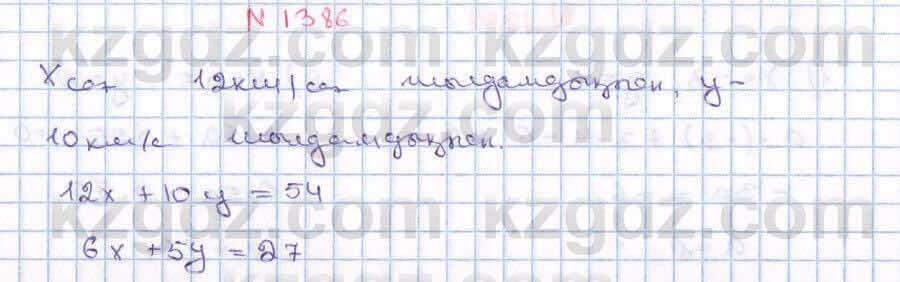 N 1386
x сағ 12км/сағ жылдамдықпен, у-
10км/с жылдамдықпен.
12x + 10y = 54
6x + 5y = 27
kzgdz.com
kzgdz.com
kzgdz.com